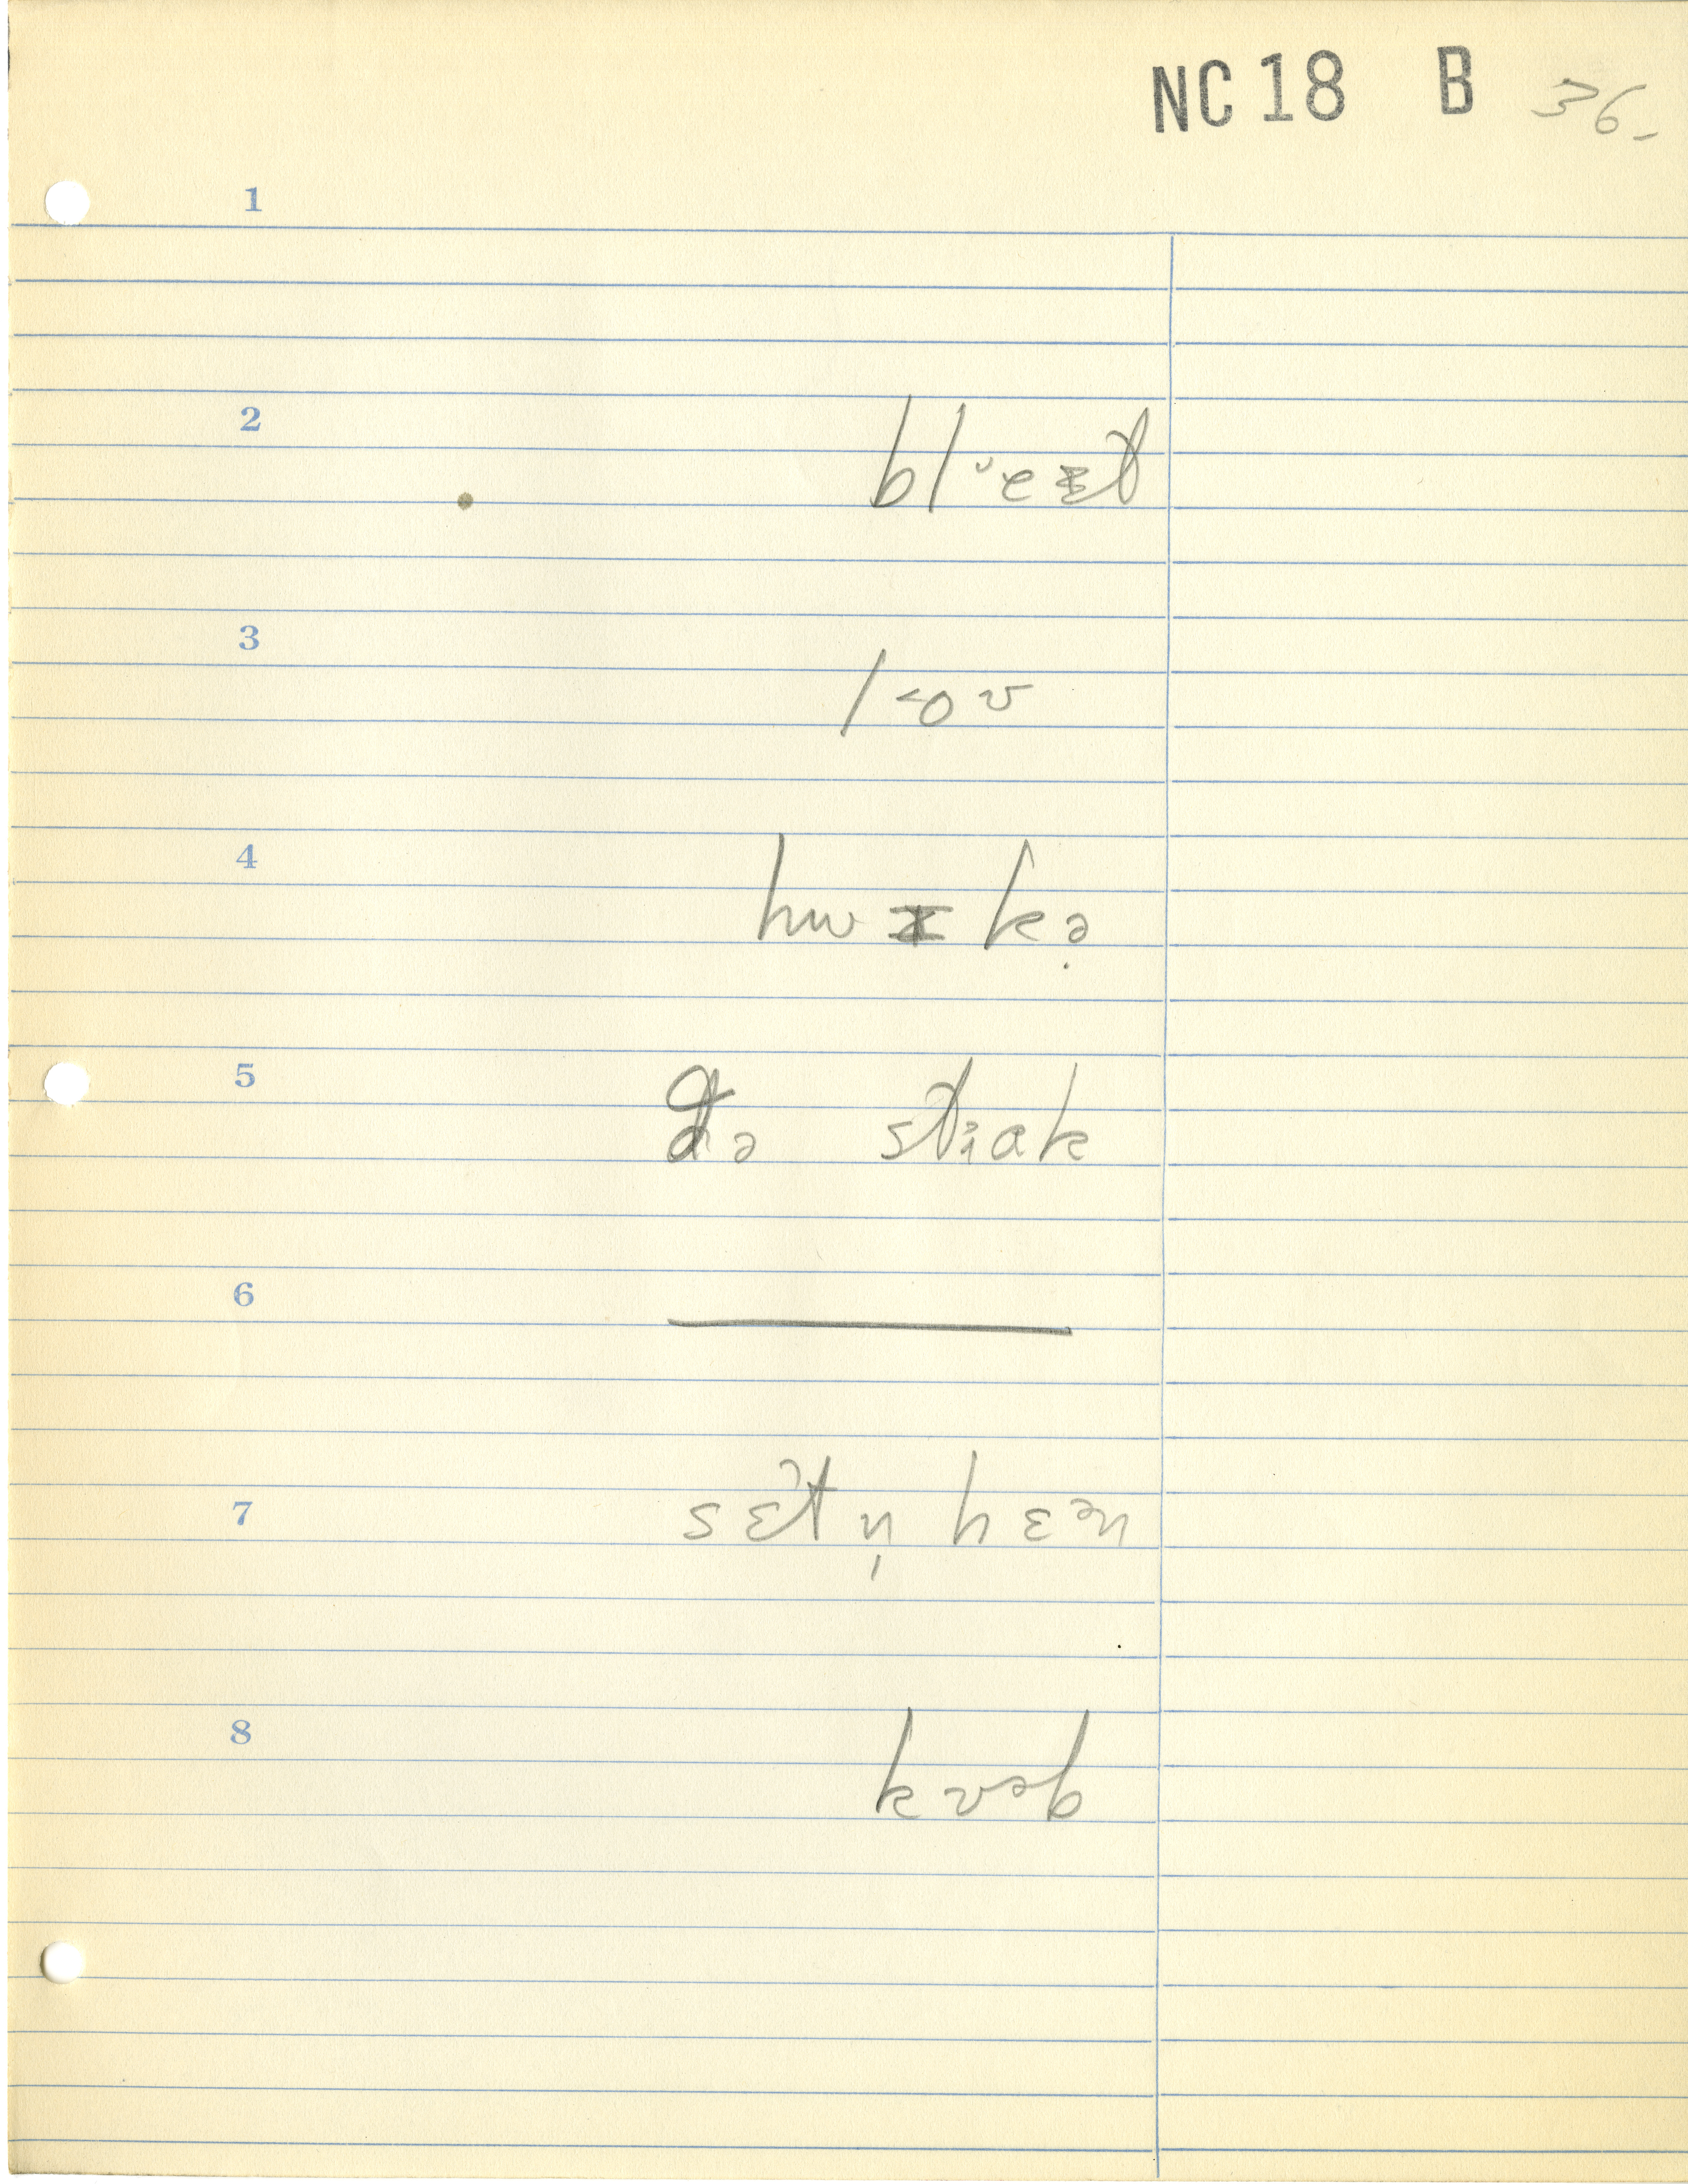 NC 18 B 36.
1
2 bl˅eɪt
3 l˂oʊ
4 hwɪkə̣
5 də stɹak
6
7 sɛt n̩ hɛᵊn
8 kʊᵊb